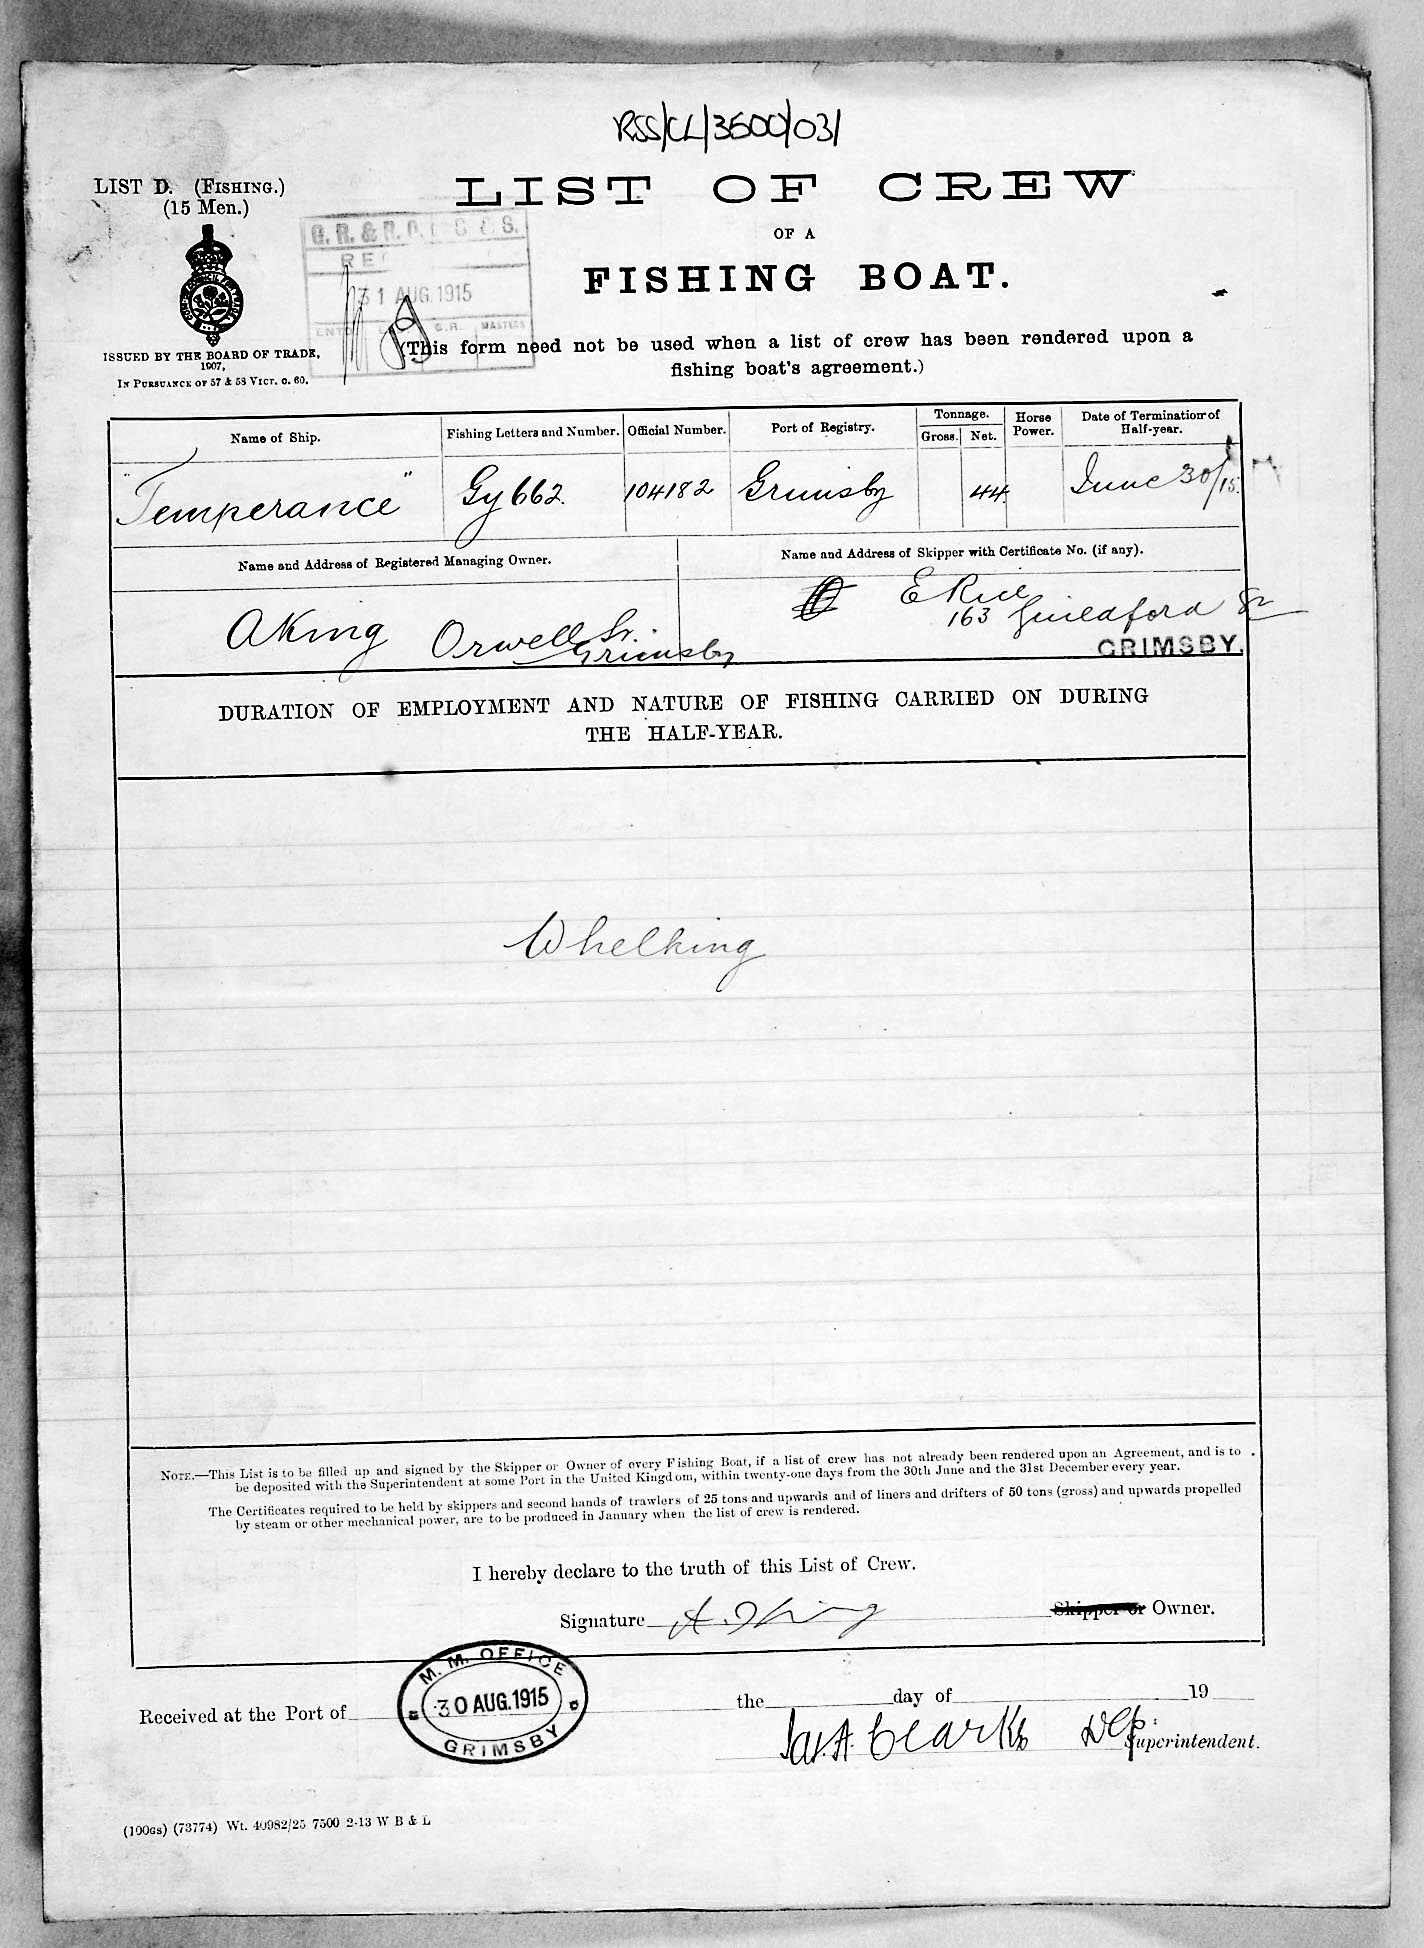 RSS/CL/3500/031
LIST D. (FISHING.)
(15 Men.)
LIST OF CREW
OF A
FISHING BOAT.
31 AUG. 1915
MASTERS
ISSUED BY THE BOARD OF TRADE,
1907,
IN PURSUANCE OF 57 & 58 VICT. c. 60.
(This form need not be used when a list of crew has been rendered upon a
fishing boat's agreement.)
Name of Ship.
Fishing Letters and Number.
Official Number.
Port of Registry.
Tonnage.
Gross.
Net.
Horse Power.
Date of Termination of Half-year.
"Temperance"
Gy 662.
104182
Grimsby
44
June 30/15.
Name and Address of Registered Managing Owner.
Name and Address of Skipper with Certificate No. (if any).
A King Orwell St.
Grimsby
E Rice
163 Guildford St
GRIMSBY.
DURATION OF EMPLOYMENT AND NATURE OF FISHING CARRIED ON DURING
THE HALF-YEAR.
Whelking
NOTE.—This List is to be filled up and signed by the Skipper or Owner of every Fishing Boat, if a list of crew has not already been rendered upon an Agreement, and is to
be deposited with the Superintendent at some Port in the United Kingdom, within twenty-one days from the 30th June and the 31st December every year.
The Certificates required to be held by skippers and second hands of trawlers of 25 tons and upwards and of liners and drifters of 50 tons (gross) and upwards propelled
by steam or other mechanical power, are to be produced in January when the list of crew is rendered.
I hereby declare to the truth of this List of Crew.
Signature A. King Skipper or Owner.
M. M. OFFICE
30 AUG. 1915
GRIMSBY
Received at the Port of the day of 19
Jas. A. Clarke Dep.
Superintendent.
(100GS) (73774) Wt. 40982/25 7500 2-13 W B & L